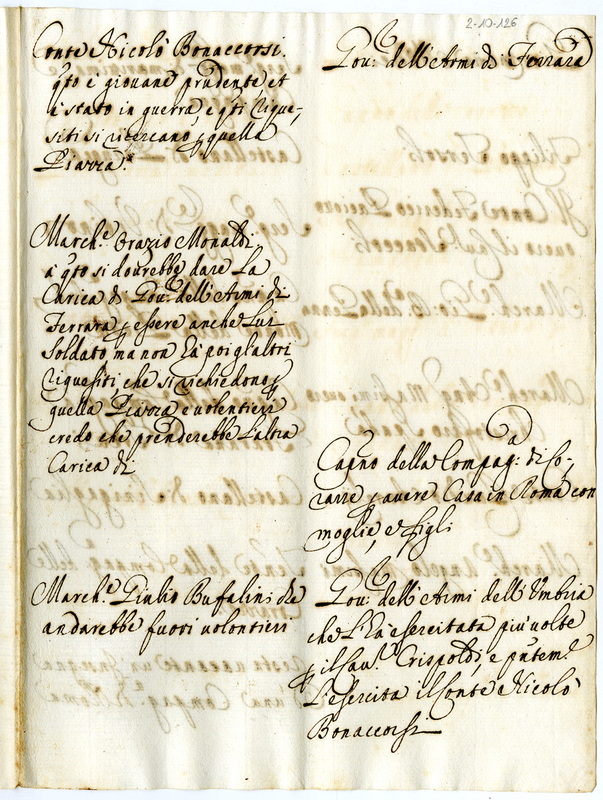 2-10-126
Conte Nicolò Bonaccorsi.
qto è giovane prudente et
è stato in guerra, e qti rique,
siti si ricercano p quella
Piazza.
Gou: dell'Armi di Ferrara
March.e Orazio Monaldi
a qto si dourebbe dare La
Carica di Gou.e dell'Armi di
Ferrara p essere anche Lui
Soldato, ma non hà poi gl'altri
riquesiti, che si richiedono p
quella Piazza e uolentieri
credo che prenderebbe L'altra
Carica di
Capno della Compag:a di Co,
razze p auere Casa in Roma con
moglie, e figli
March.e Giulio Bufalini che
andarebbe fuori uolontieri
Gou: dell'Armi dell'Umbria
che L'hà esercitata più uolte
p il Cau.r Crispoldi, e pntem.e
L'esercita il Conte Nicolò
Bonaccorsi